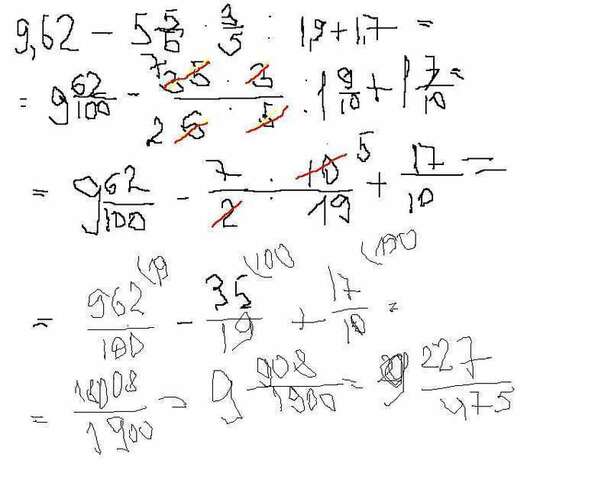 9,62 - 5 5/6 · 3/5 : 1,9 + 1,7 =
= 9 62/100 - 7 35 · 3 / 2 6 · 5 : 1 9/10 + 1 7/10 =
= 9 62/100 - 7/2 : 10 5/19 + 17/10 =
= 962/100 (19 - 35/19 (100 + 17/10 (190 =
= 18008/1900 = 9 908/1900 = 9 227/475